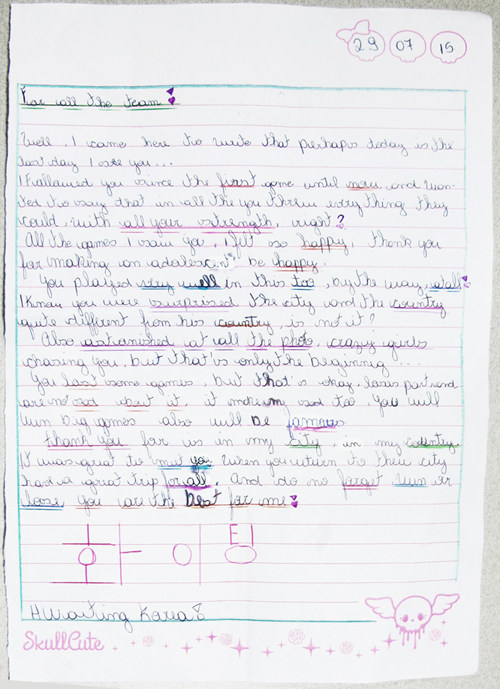 29 07 15
For all the team
Well, I came here to write that perhaps today is the
last day I see you...
I followed you since the first game until now, and wan-
ted to say that in all the you threw everything they
could, with all your strength, right?
All the games I saw you, I felt so happy, thank you
for making an adolescent be happy.
You played very well in this too, by the way, at all
I know you were surprised the city and the country
quite different from his country, is not it?
Also astonished at all the photo, crazy girls
chasing you, but that is only the beginning...
You lost some games, but that is okay, loses part and
are not sad about it, it makes me sad too. You will
win big games also will be famous
thank you for us in my city, in my country.
It was great to meet you. When you return to their city
had a great trip for all. And do no forget win or
loose you are the best for me
E I
Hwaiting Korea
SkullCute